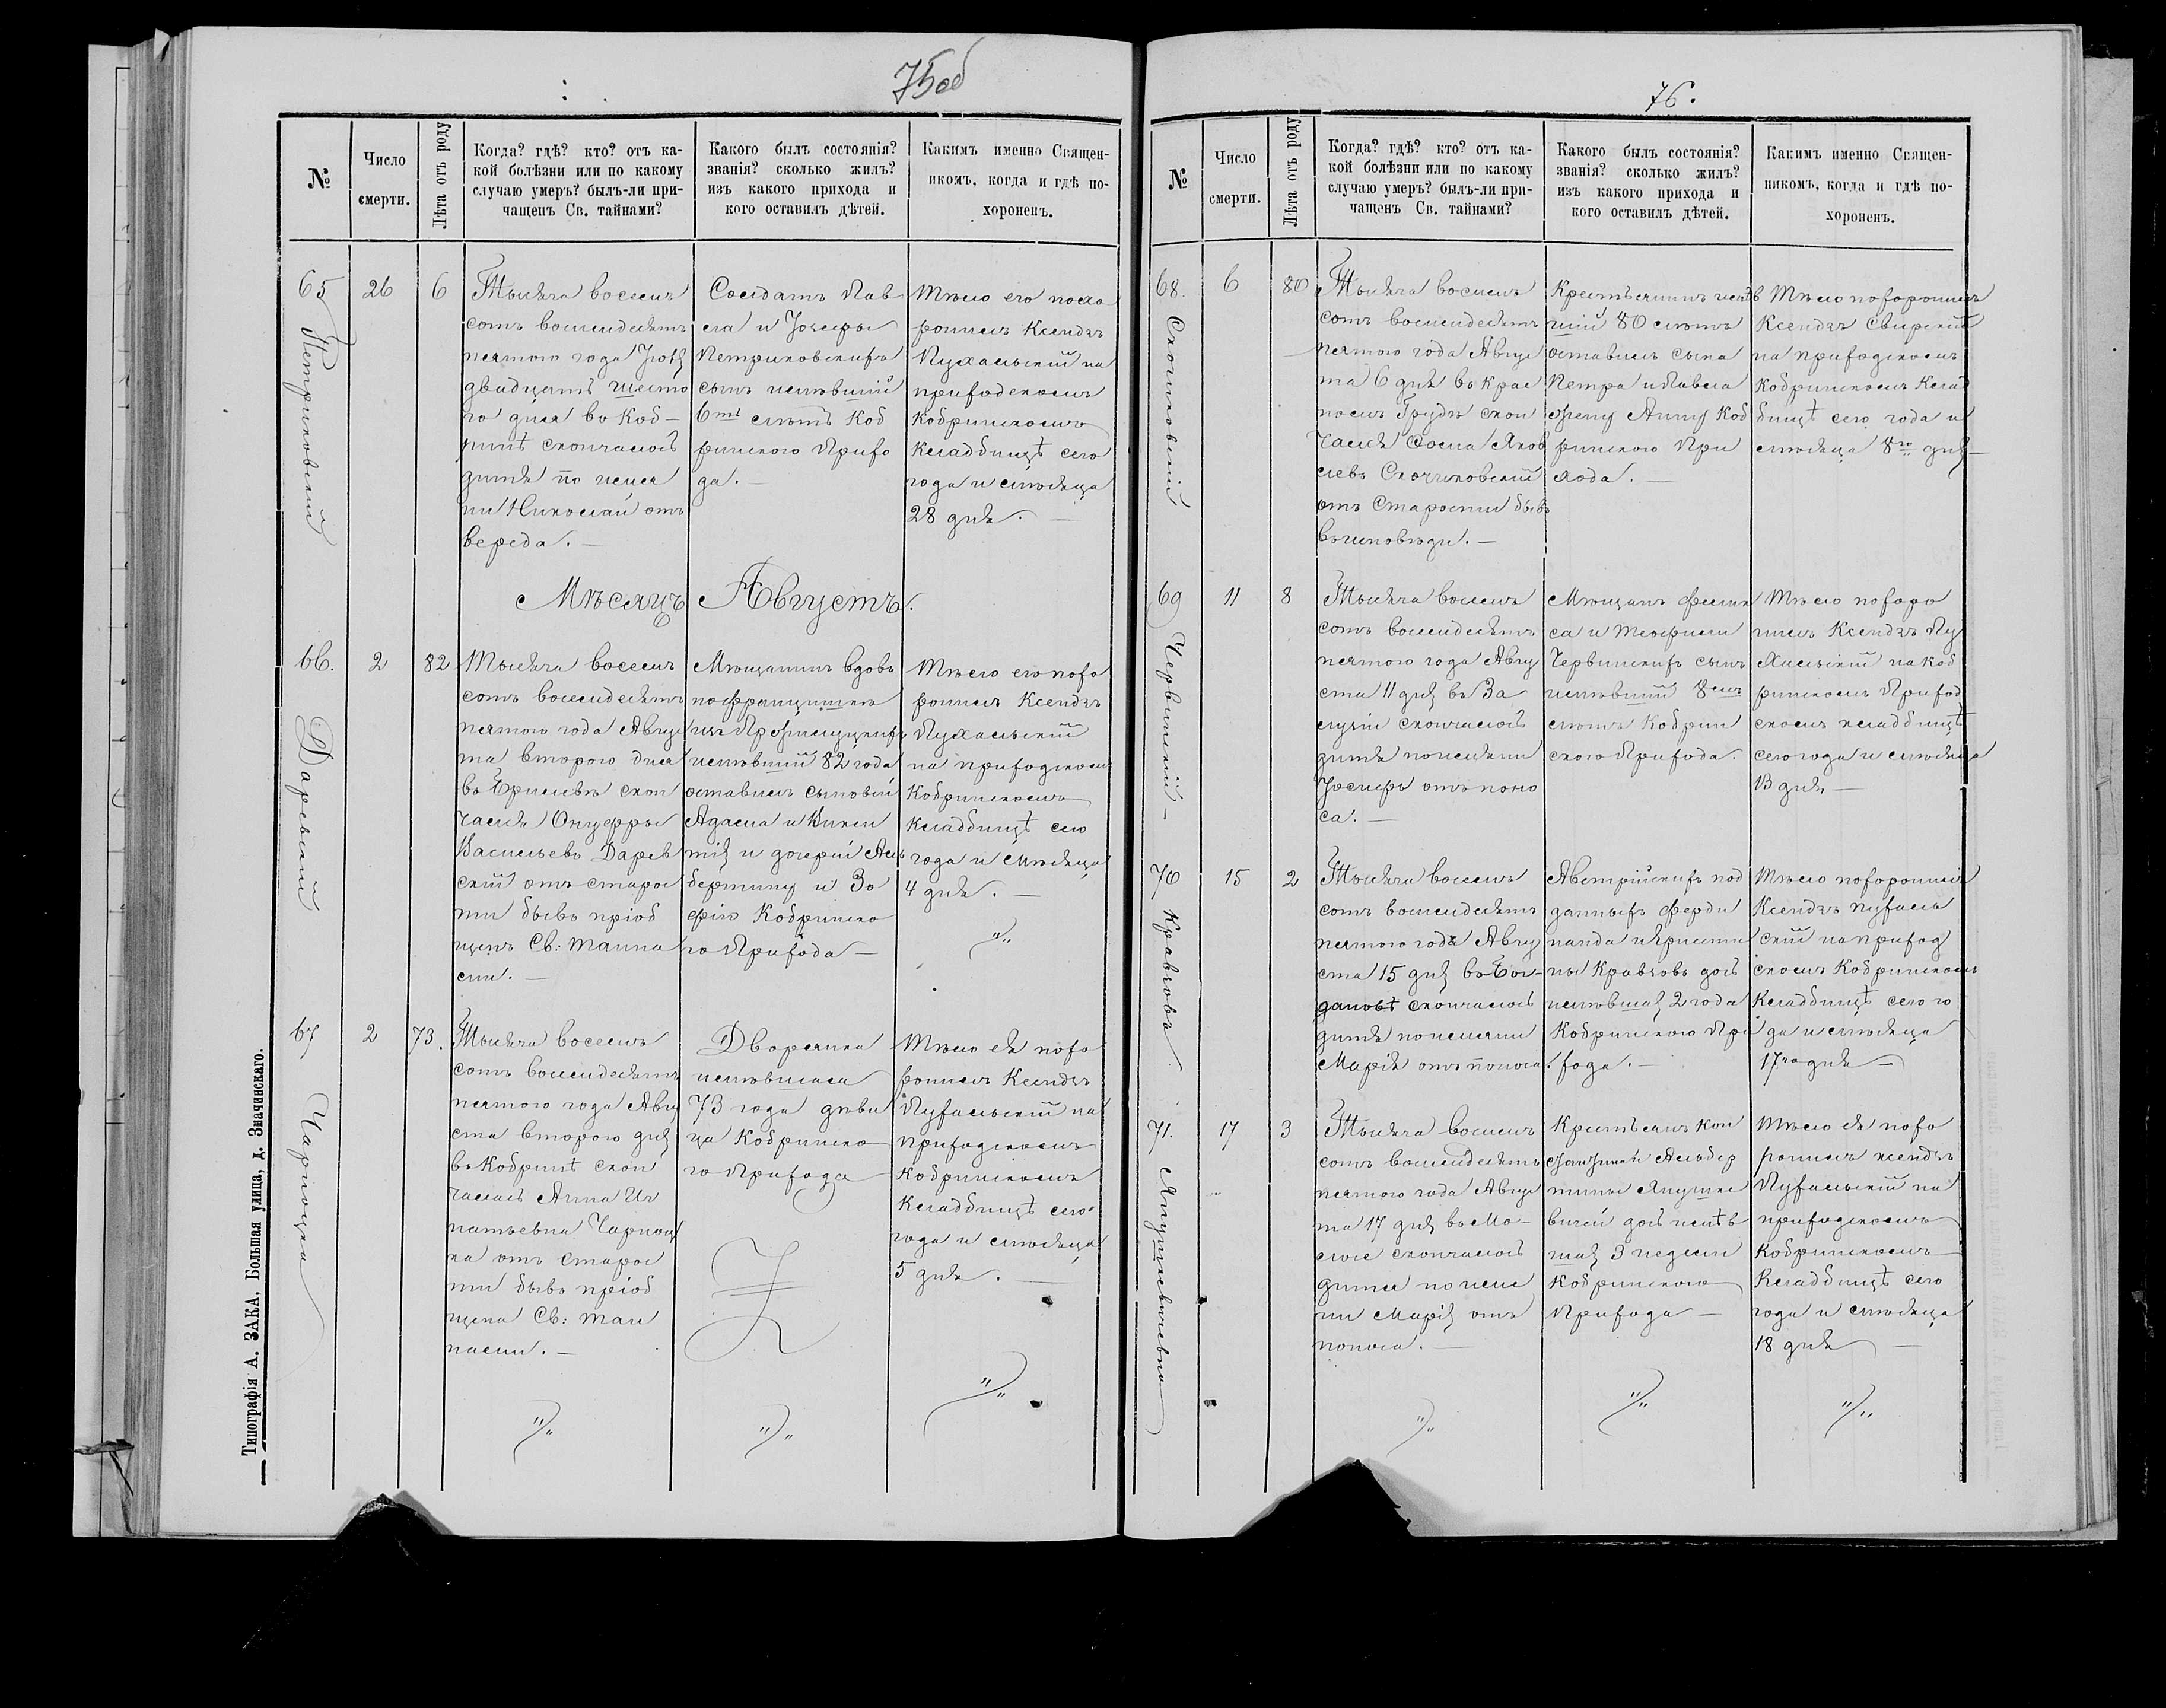 75об
№
Число
смерти.
Лѣта отъ роду
Когда? гдѣ? кто? отъ ка-
кой болѣзни или по какому
случаю умеръ? былъ-ли при-
чащенъ Св. тайнами?
Какого былъ состоянія?
званія? сколько жилъ?
изъ какого прихода и
кого оставилъ дѣтей.
Какимъ именно Священ-
никомъ, когда и гдѣ по-
хороненъ.
65
Петриковскій
26
6
Тысяча восемъ
сотъ восемдесятъ
пятого года Іюля
двадцать шесто
го дня въ Коб-
ринѣ скончалось
дитя по имени
Николай отъ
вереда. —
Солдатъ Пав
ла и Іозефы
Петриковскихъ
сынъ имѣвшій
6ть лѣтъ Коб
ринского Прихо
да. —
Тѣло его похо
ронилъ Ксендзъ
Пухальскій на
приходскомъ
Кобринскомъ
Кладбищѣ сего
года и мѣсяца
28 дня. —
Мѣсяцъ Августъ.
66.
Даревскій
2
82
Тысяча восемъ
сотъ восемдесятъ
пятого года Авгус
та второго дня
въ скон
чался Онуфры
Васильевъ Дарев
скій отъ старос
ти бывъ пріоб
щенъ Св: Тайна
ми. —
Мѣщанинъ вдовъ
по Францишкѣ
имѣвшій 82 года
оставилъ сыновій
Адама и Викен
тія и дочерій Аль
бертину и Зо
фію Кобринско
го Прихода —
Тѣло его похо
ронилъ Ксендзъ
Пухальскій
на приходскомъ
Кобринскомъ
Кладбищѣ сего
года и Мѣсяца
4 дня. —
67
Чарноцка
2
73.
Тысяча восемъ
сотъ восемдесятъ
пятого года Авгу
ста второго дня
въ Кобринѣ скон
чалась Анна Иг
натьевна Чарноц
ка отъ старос
ти бывъ пріоб
щена Св: Таи
нами. —
Дворянка
имѣвшая
73 года дѣви
ца Кобринско
го Прихода
Тѣло ея похо
ронилъ Ксендзъ
Пухальскій на
приходскомъ
Кобринскомъ
Кладбищѣ сего
года и мѣсяца
5 дня. —
Типографія А. ЗАКА, Большая улица, д. Значинскаго.
76.
№
Число
смерти.
Лѣта отъ роду
Когда? гдѣ? кто? отъ ка-
кой болѣзни или по какому
случаю умеръ? былъ-ли при-
чащенъ Св. тайнами?
Какого былъ состоянія?
званія? сколько жилъ?
изъ какого прихода и
кого оставилъ дѣтей.
Какимъ именно Священ-
никомъ, когда и гдѣ по-
хороненъ.
68.
Скочиковскій
6
80
Тысяча восемъ
сотъ восемдесятъ
пятого года Авгус
та 6 дня въ Крас
номъ Грудѣ скон
чался Фома Яков
левъ Скочиковскій
отъ Старости бывъ
въ исповѣди. —
Крестьянинъ имѣв
шій 80 лѣтъ
оставилъ сына
Петра и Павла
жену Анну Коб
ринского При
хода. —
Тѣло похоронилъ
Ксендзъ Свирскій
на приходскомъ
Кобринскомъ Клад
бищѣ сего года и
мѣсяца 8го дня —
69
Червинскій —
11
8
Тысяча восемъ
сотъ восемдесятъ
пятого года Авгу
ста 11 дня въ За
скончалось
дитя по имени
Іосифъ отъ поно
са. —
Мѣщанъ Фелик
са и Теофили
Червинскихъ сынъ
имѣвшій 8емъ
лѣтъ Кобрин
ского Прихода.
Тѣло похоро
нилъ Ксендзъ Пу
хальскій на Коб
ринскомъ Приход
скомъ кладбищѣ
сего года и мѣсяца
13 дня —
70
Кравчовъ
15
2
Тысяча восемъ
сотъ восемдесятъ
пятого года Авгу
ста 15 дня въ Бог-
дановѣ скончалось
дитя по имени
Марія отъ поноса.
Австрійскихъ под
данныхъ Ферди
нанда и Кристи
ны Кравчовъ дочь
имѣвшая 2 года
Кобринского При
хода. —
Тѣло похоронилъ
Ксендзъ Пухаль
скій на приход
скомъ Кобринскомъ
Кладбищѣ сего го
да и мѣсяца
17го дня —
71.
Янушкевичевна
17
3
Тысяча восемъ
сотъ восемдесятъ
пятого года Авгус
та 17 дня въ
скончалось
дитя по име
ни Марія отъ
поноса. —
Крестьянъ Кон
Альбер
тины Янушке
вичей дочь имѣв
шая 3 недели
Кобринского
Прихода —
Тѣло ея похо
ронилъ ксендзъ
Пухальскій на
приходскомъ
Кобринскомъ
Кладбищѣ сего
года и мѣсяца
18 дня —